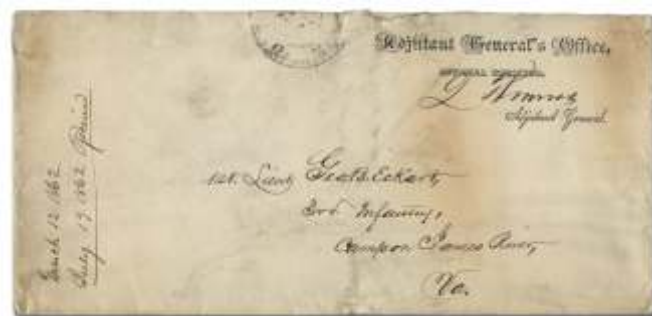 Adjutant General's Office,
OFFICIAL BUSINESS.
L Thomas
Adjutant General.
1st. Lieut. Geo. B. Eckart,
3rd Infantry,
Camp on James River,
Va.
March 12 1862
July 19 1862